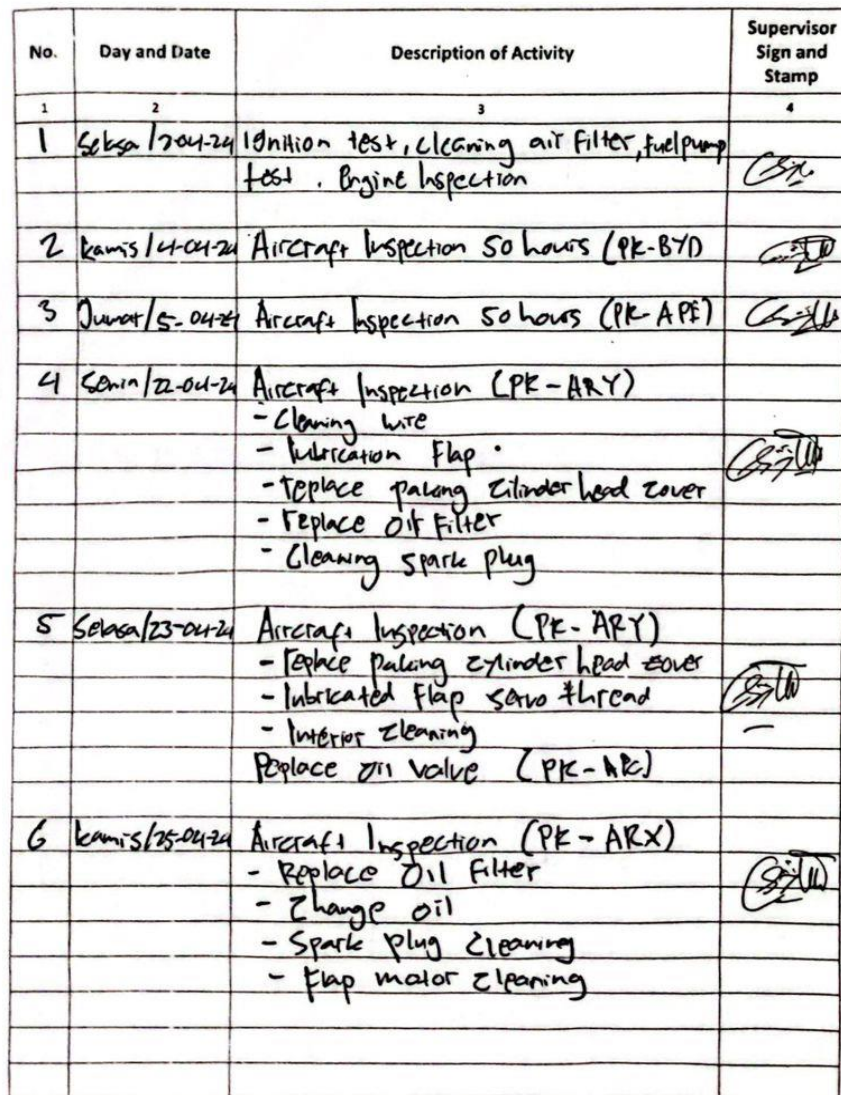 No. Day and Date Description of Activity Supervisor Sign and Stamp
1 2 3 4
1 Selasa/2-04-24 Ignition test, cleaning air filter, fuel pump
test. Engine Inspection
2 kamis/4-04-24 Aircraft Inspection 50 hours (PK-BYD
3 Jumat/5-04-24 Aircraft Inspection 50 hours (PK-API)
4 Senin/22-04-24 Aircraft Inspection (PK-ARY)
- Cleaning wire
- lubrication Flap
- replace paking cilinder head cover
- replace oil Filter
- Cleaning spark plug
5 Selasa/23-04-24 Aircraft Inspection (PK-ARY)
- replace paking cylinder head cover
- lubricated Flap servo thread
- Interior cleaning
Replace oil valve
6 kamis/25-04-24 Aircraft Inspection (PK-ARX)
- Replace Oil Filter
- Change oil
- Spark plug Cleaning
- Flap motor cleaning